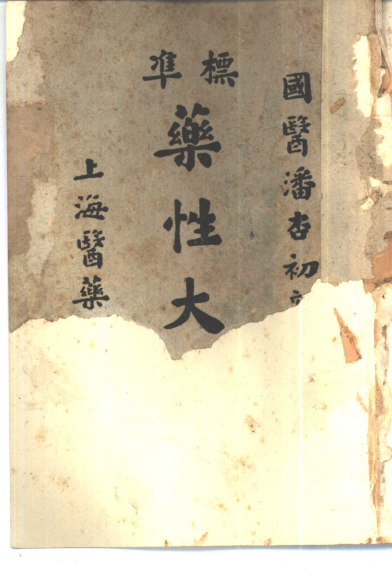 國醫潘杏初
標準
藥性大
上海醫藥